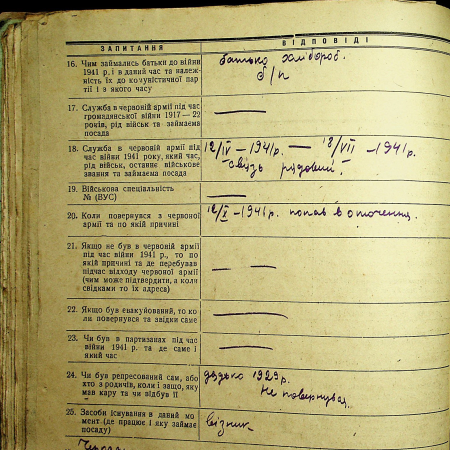 ЗАПИТАННЯ
ВІДПОВІДІ
16. Чим займались батьки до війни
1941 р. і в даний час та належ-
ність їх до комуністичної пар-
тії і з якого часу
батько хлібороб.
б/п
17. Служба в червоній армії під час
громадянської війни 1917—22
років, рід військ та займаєма
посада
18. Служба в червоній армії під
час війни 1941 року, який час,
рід військ, останнє військове
звання та займаєма посада
12/IV — 1941р. — 18/VII — 1941р.
связь рядовий.
19. Військова спеціальність
№ (ВУС)
20. Коли повернувся з червоної
армії та по якій причині
1941р. попав в оточення.
21. Якщо не був в червоній армії
під час війни 1941 р., то по
якій причині та де перебував
підчас відходу червоної армії
(чим може підтвердити, а коли
свідками то їх адреса)
22. Якщо був евакуйований, то ко
ли повернувся та звідки саме
23. Чи був в партизанах під час
війни 1941 р. та де саме і
який час
24. Чи був репресований сам, або
хто з родичів, коли і защо, яку
мав кару та чи відбув її
дядько 1929 р.
Не повернувся.
25. Засоби існування в даний мо
мент (де працює і яку займає
посаду)
візник